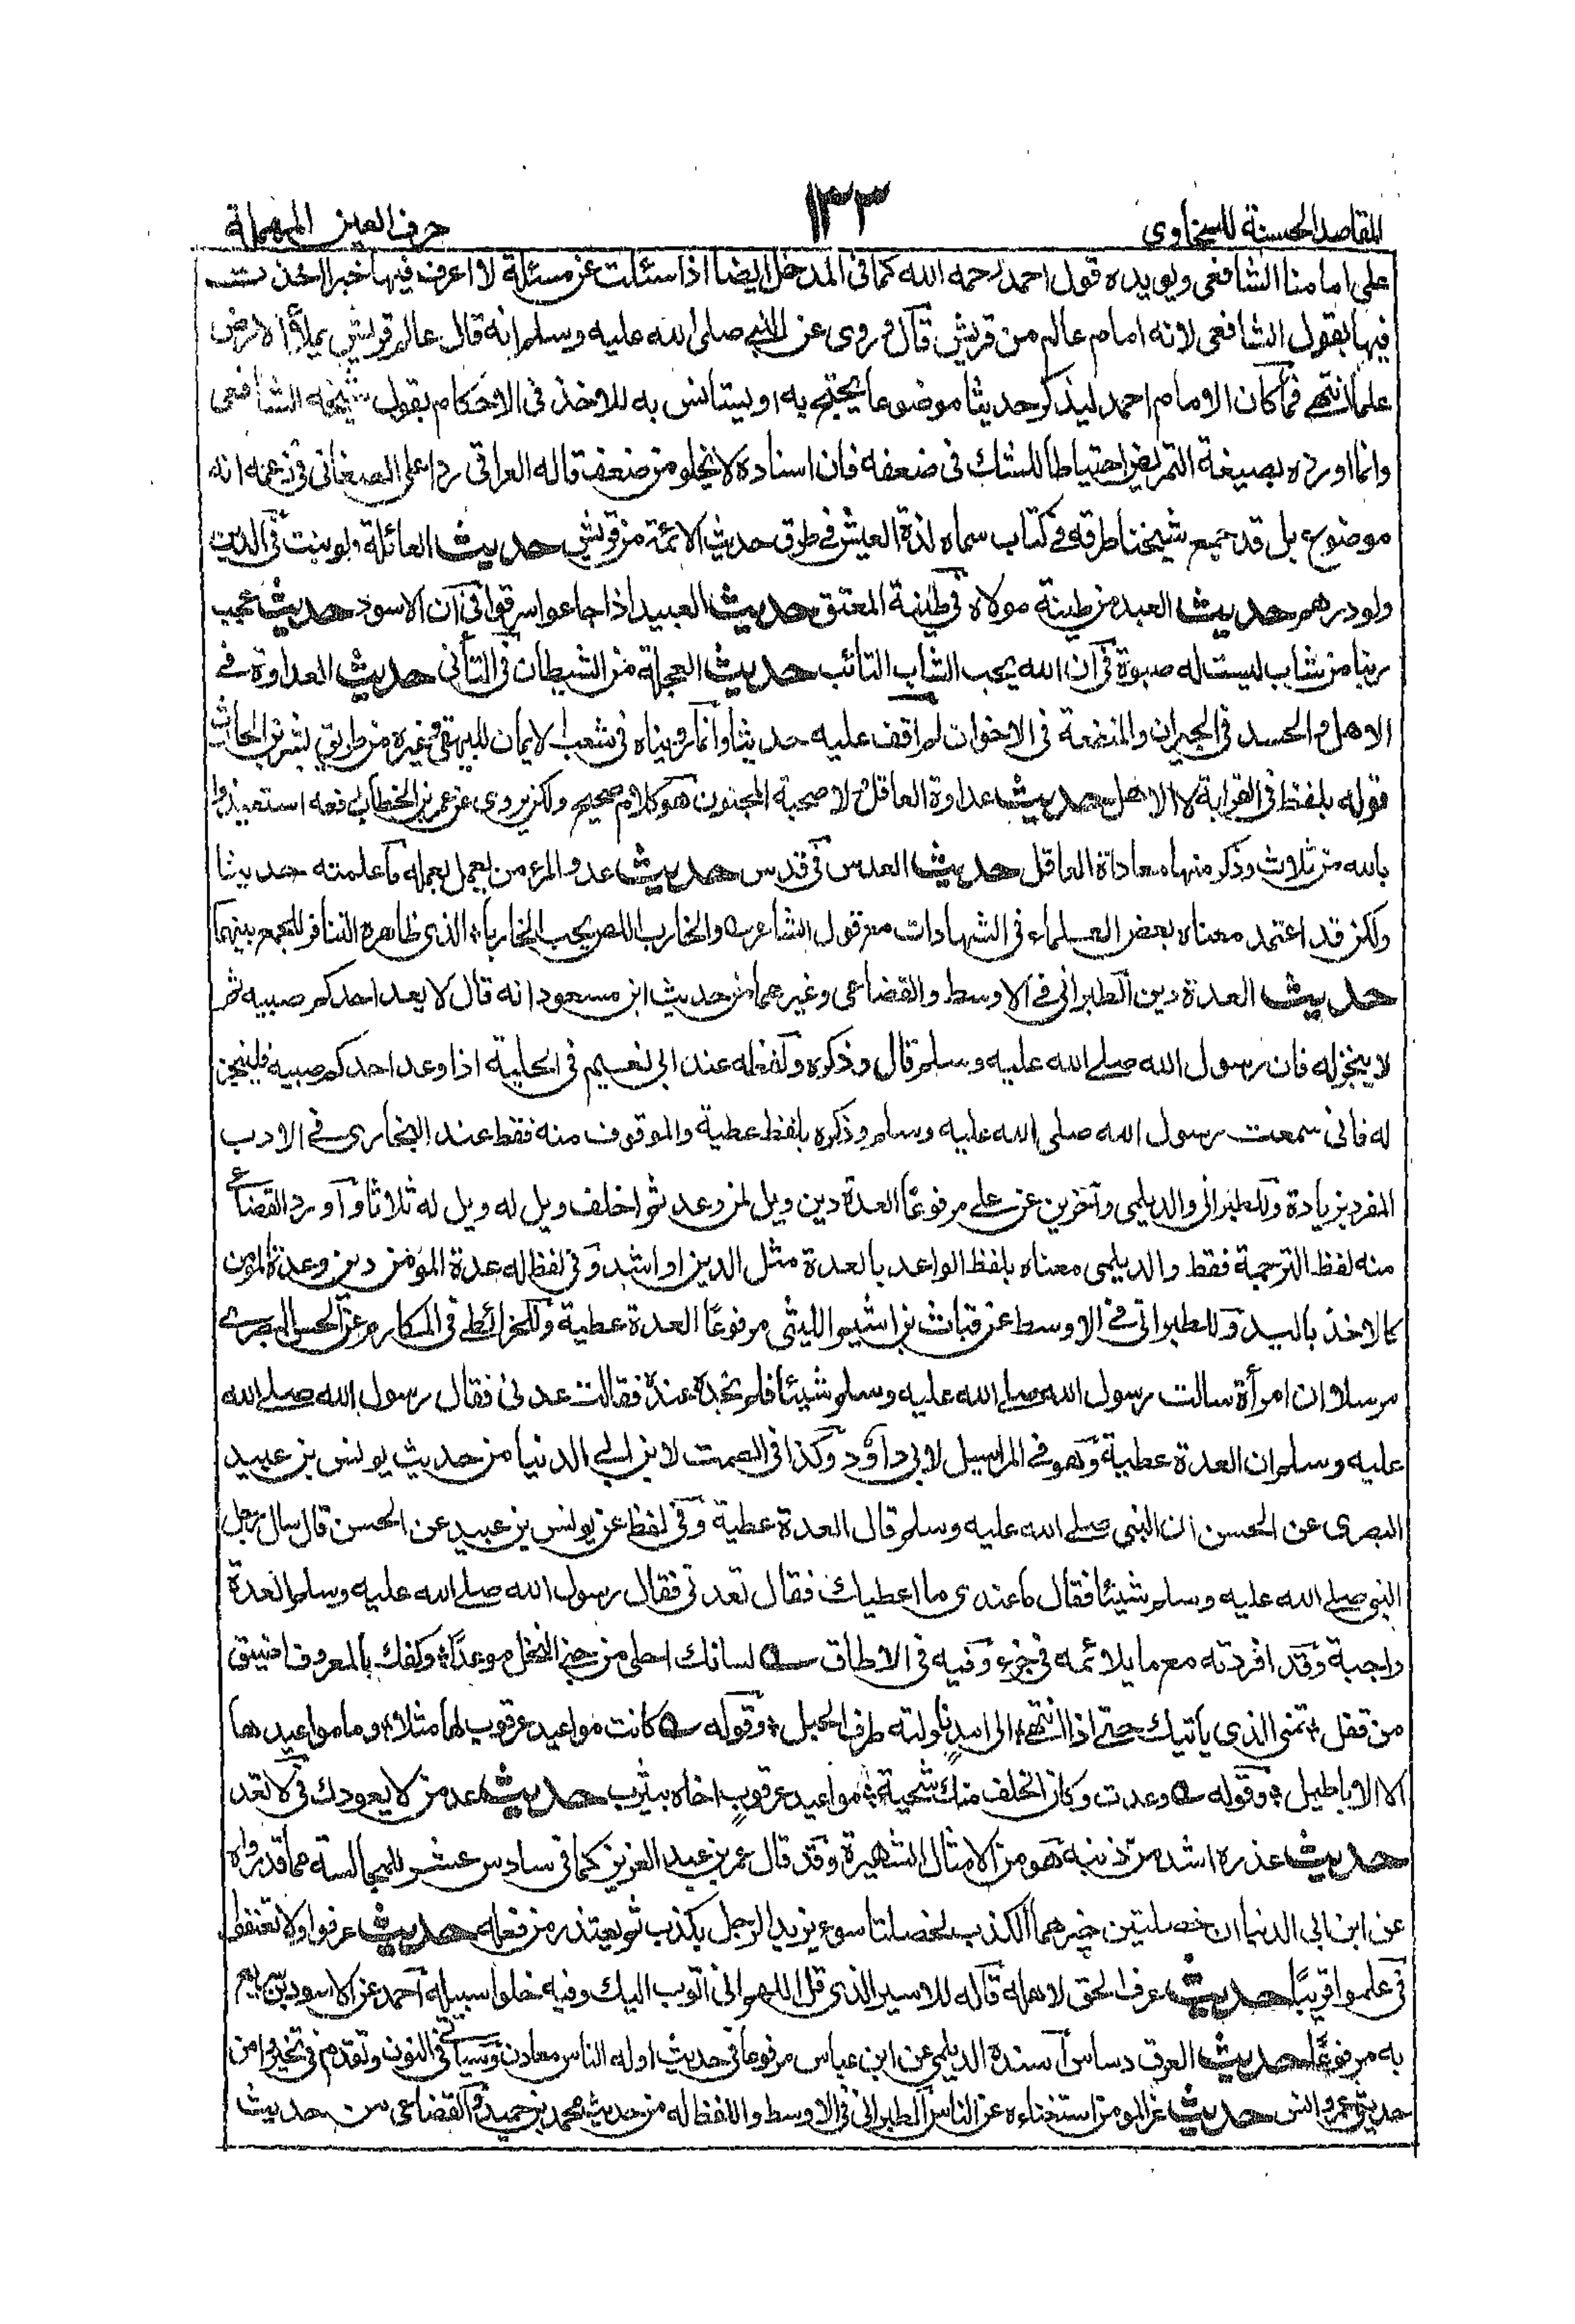 المقاصد الحسنة للسخاوي
١٣٣
حرف العين المهملة
على امامنا الشافعى ويويده قول احمد رحمه الله كما فى المدخل ايضا اذا سئلت عن مسئلة لا اعرف فيها خبرا اخذت
فيها بقول الشافعى لانه امام عالم من قريش قال وروى عن النبى صلى الله عليه وسلم انه قال عالم قريش يملأ الارض
علما انتهى فما كان الامام احمد ليذكر حديثا موضوعا يحتج به او يستانس به للاخذ فى الاحكام بقول شيخه الشافعى
وانما اورده بصيغة التمريض احتياطا للشك فى ضعفه فان اسناده لا يخلو من ضعف قاله العراقى ردا على الصغانى فى زعمه انه
موضوع بل قد جمع شيخنا طرقه فى كتاب سماه لذة العيش فى طرق حديث الائمة من قريش حديث العائلة ولو بنت فى الدين
ولو درهم حديث العبد من طينة مولاه فى طينة المعتق حديث العبيد اذا جاعوا سرقوا فى ان الاسود حديث عجب
ربنا من شاب ليست له صبوة فى ان الله يحب الشاب التائب حديث العجلة من الشيطان فى التأنى حديث العداوة فى
الاهل والحسد فى الجيران والمنفعة فى الاخوان لم اقف عليه حديثا وانما رويناه فى شعب الايمان للبيهقى وغيره من طريق بشر بن الحارث
قوله بلفظ فى القرابة لا الاهل حديث عداوة العاقل ولا صحبة المجنون هو كلام صحيح ولكن يروى عن عمر بن الخطاب رفعه استعيذوا
بالله من ثلاث وذكر منها معاداة العاقل حديث العدس فى قدس حديث عدو المرء من يعمل بعمله ما علمته حديثا
ولكن قد اعتمد معناه بعض العلماء فى الشهادات مع قول الشاعر والخارب اللص يحب الخاربا الذى ظاهره التنافر للجمع بينهما
حديث العدة دين الطبرانى فى الاوسط والقضاعى وغيرهما من حديث ابن مسعود انه قال لا يعد احدكم صبيه ثم
لا ينجز له فان رسول الله صلى الله عليه وسلم قال وذكره ولفظه عند ابى نعيم فى الحلية اذا وعد احدكم صبيه فلينجز
له فانى سمعت رسول الله صلى الله عليه وسلم وذكره بلفظ عطية والموقوف منه فقط عند البخارى فى الادب
المفرد بزيادة وللطبرانى والديلمى وآخرين عن على مرفوعا العدة دين ويل لمن وعد ثم اخلف ويل له ويل له ثلاثا واورد القضاعى
منه لفظ الترجمة فقط والديلمى معناه بلفظ الواعد بالعدة مثل الدين او اشد وفى لفظ له عدة المؤمن دين وعدة المؤمن
كالاخذ باليد وللطبرانى فى الاوسط عن قباث بن اشيم الليثى مرفوعا العدة عطية وللخرائطى فى المكارم عن الحسن البصرى
مرسلا ان امرأة سالت رسول الله صلى الله عليه وسلم شيئا فلم تجده عنده فقالت عدنى فقال رسول الله صلى الله
عليه وسلم ان العدة عطية وهو فى المراسيل لابى داؤد وكذا فى الصمت لابن ابى الدنيا من حديث يونس بن عبيد
البصرى عن الحسن ان النبى صلى الله عليه وسلم قال العدة عطية وفى لفظ عن يونس بن عبيد عن الحسن قال سال رجل
النبى صلى الله عليه وسلم شيئا فقال ما عندى ما اعطيك فقال تعدنى فقال رسول الله صلى الله عليه وسلم العدة
واجبة وقد افردته مع ما يلائمه فى جزء وفيه فى الاطاق لسانك احلى من جنى النحل موعدا وكفك بالمعروف اضيق
من قفل تمنى الذى يأتيك حتى اذا انتهى الى امد ناولته طرف الحبل وقوله كانت مواعيد عرقوب لها مثلا وما مواعيدها
الا الاباطيل وقوله وعدت وكان الخلف منك سجية مواعيد عرقوب اخاه بيثرب حديث عد من لا يعودك فى لا تعد
حديث عذره اشد من ذنبه هو من الامثال الشهيرة وقد قال عمر بن عبد العزيز كما فى سادس عشر المجالسة مما قد رواه
عن ابن ابى الدنيا ان خصلتين خيرهما الكذب لخصلتا سوء يريد الرجل يكذب ثم يعتذر من فعله حديث عرفوا ولا تعنفوا
فى علموا قريبا حديث عرف الحق لاهله قاله للاسير الذى قال اللهم انى اتوب اليك وفيه خلوا سبيله احمد عن الاسود بن سريع
به مرفوعا حديث العرق دساس اسنده الديلمى عن ابن عباس مرفوعا فى حديث اوله الناس معادن وسيأتى فى النون وتقدم فى تخيروا من
حديث عمر وانس حديث عز المومن استغناءه عن الناس الطبرانى فى الاوسط واللفظ له من حديث محمد بن حميد والقضاعى من حديث